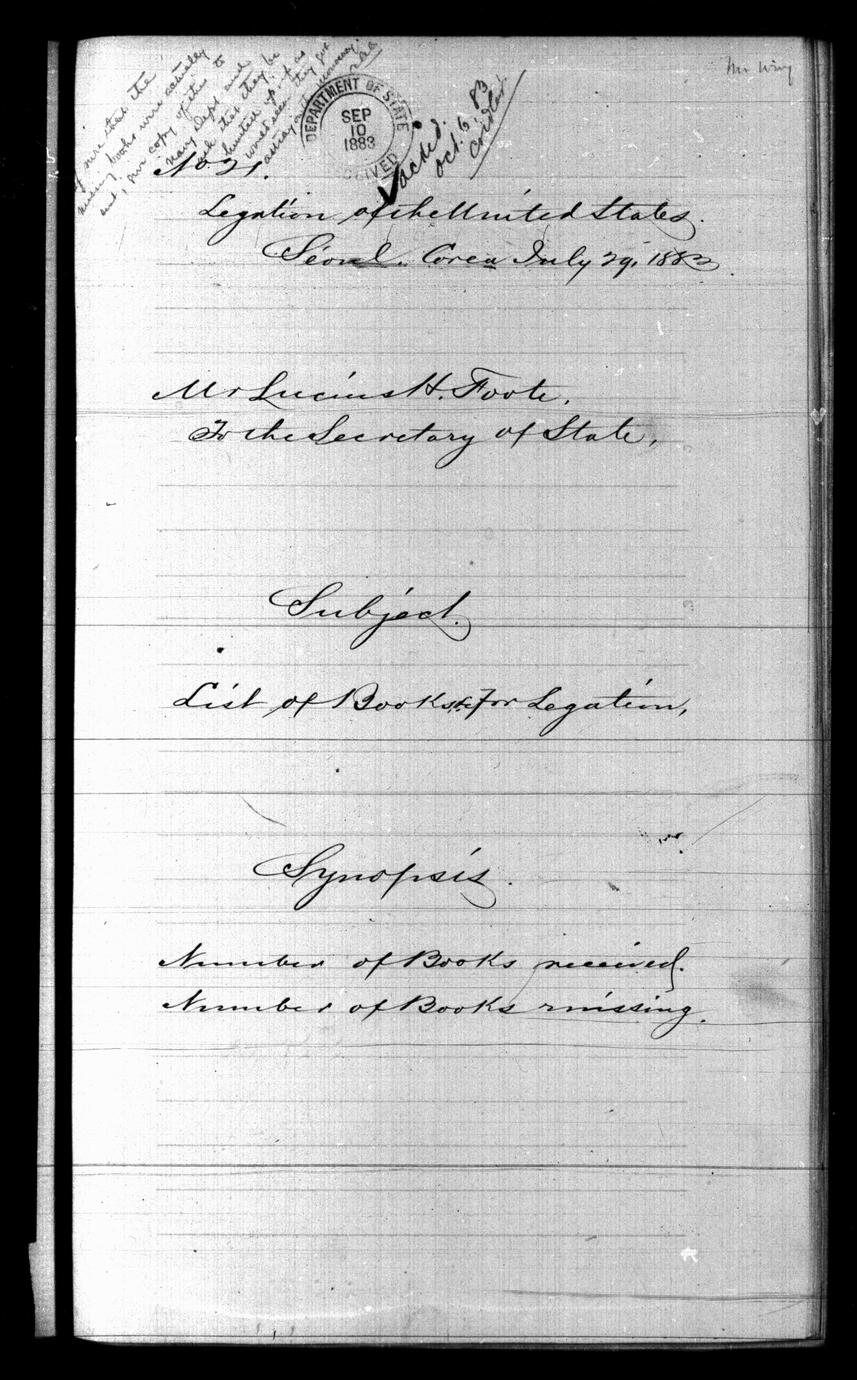 Mr Wing
If sure that the
missing books were actually
sent, give copy of this to
Navy Dept and
ask that they be
hunted up if as
would seem they got
astray
DEPARTMENT OF STATE
SEP
10
1883
RECEIVED
acked.
Oct. 6. 83
Cridler
No 21.
Legation of the United States.
Séoul. Corea July 29, 1883
Mr Lucius H. Foote.
To the Secretary of State,
Subject.
List of Books &c for Legation,
Synopsis.
Number of Books received.
Number of Books missing.